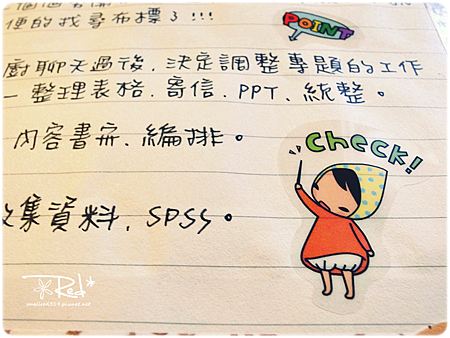 便的找尋布標了!!!
POINT
廚聊天過後、決定調整專題的工作
一整理表格、寄信、PPT、統整。
內容書寫、編排。
check!
收集資料、SPSS。
Red*